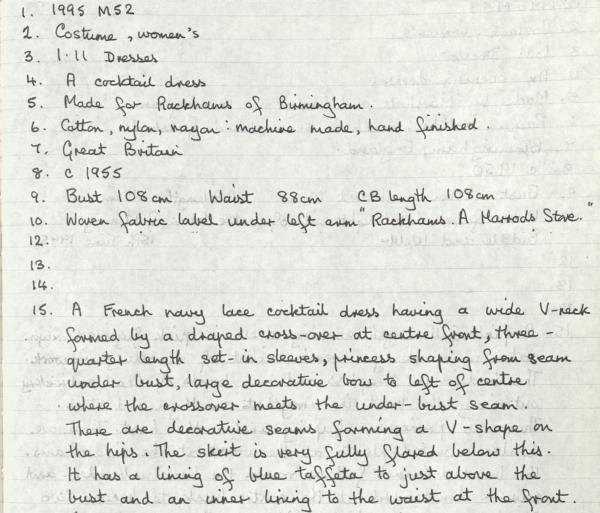 1. 1995 M52
2. Costume, women's
3. 1.11 Dresses
4. A cocktail dress
5. Made for Rackhams of Birmingham.
6. Cotton, nylon, rayon: machine made, hand finished.
7. Great Britain
8. c 1955
9. Bust 108cm Waist 88cm CB length 108cm
10. Woven fabric label under left arm "Rackhams. A Harrods Store."
12.
13.
14.
15. A French navy lace cocktail dress having a wide V-neck
formed by a draped cross-over at centre front, three-
quarter length set-in sleeves, princess shaping from seam
under bust, large decorative bow to left of centre
where the crossover meets the under-bust seam.
There are decorative seams forming a V-shape on
the hips. The skirt is very fully flared below this.
It has a lining of blue taffeta to just above the
bust and an inner lining to the waist at the front.